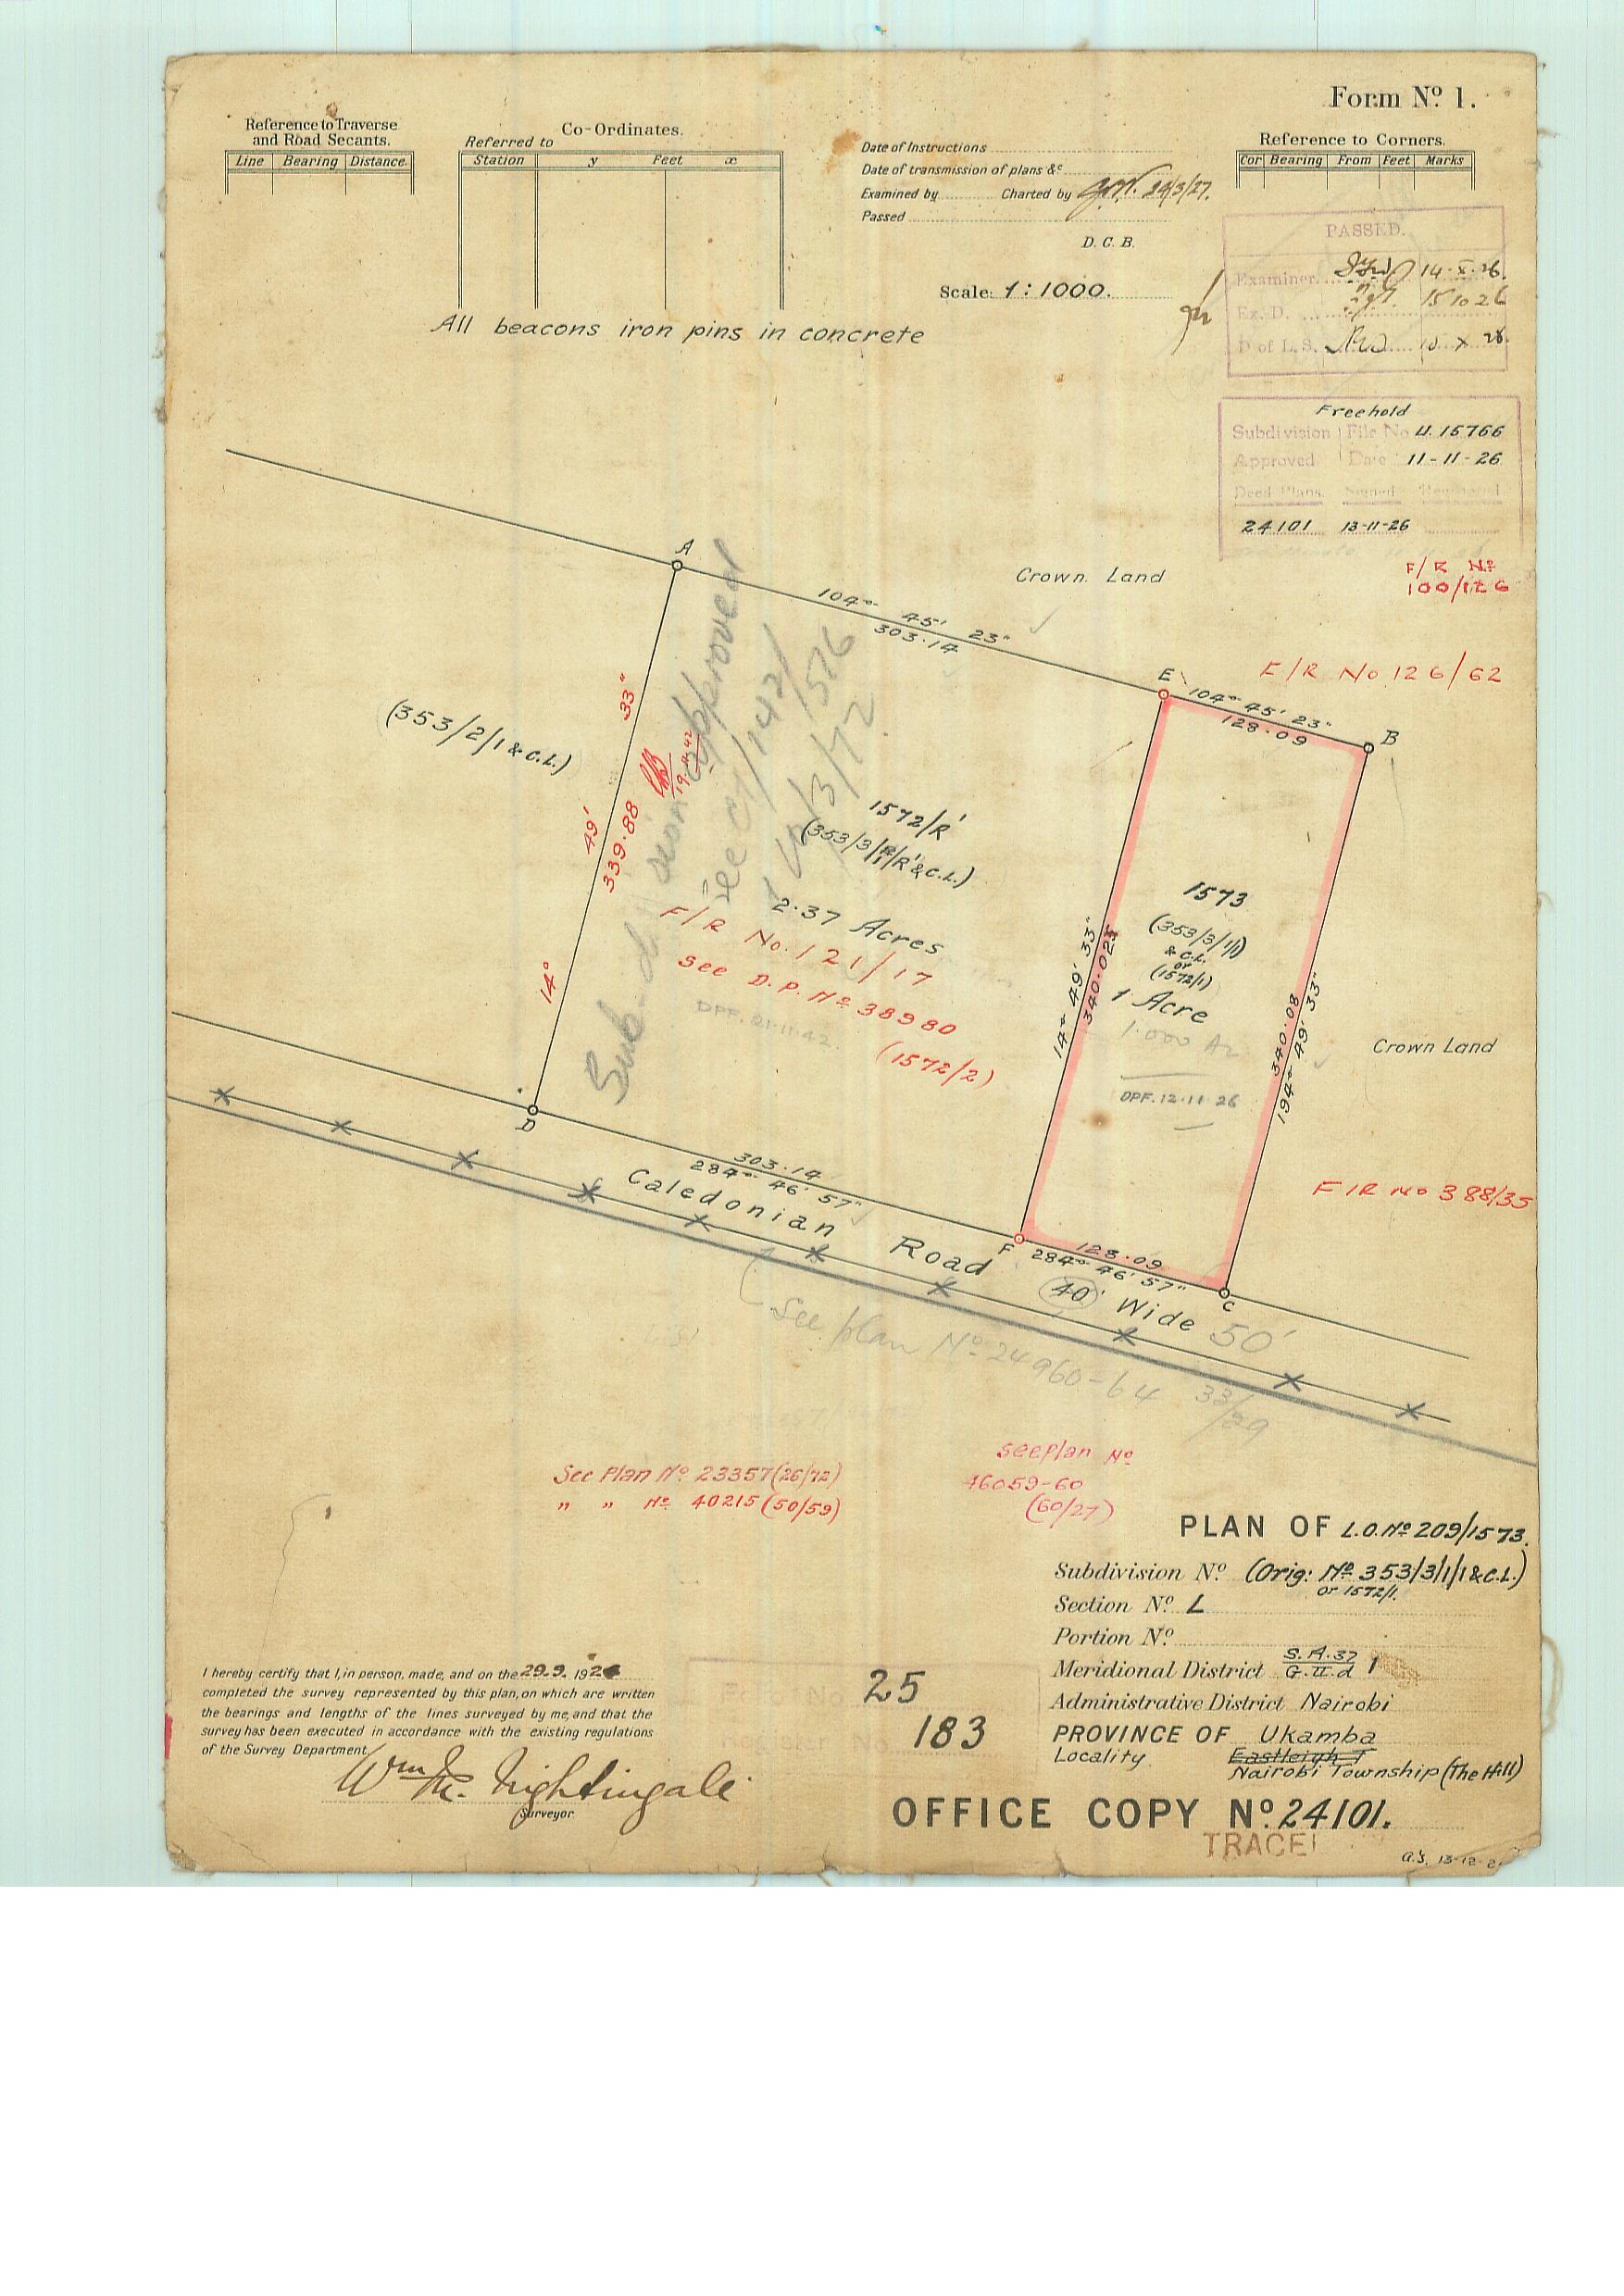 Form Nº 1.
Reference to Traverse
and Road Secants.
Line Bearing Distance.
Co-Ordinates.
Referred to
Station y Feet x
Date of Instructions
Date of transmission of plans &c
Examined by Charted by 24/3/27.
Passed
D. C. B.
Scale: 1:1000.
Reference to Corners.
Cor Bearing From Feet Marks
PASSED.
Examiner 14-X-26.
Ex. D. 15 10 26
D of L. S. X 26.
All beacons iron pins in concrete
Freehold
Subdivision File No 4.15766
Approved Date 11-11-26
Deed Plans. Signed Registered
24101 13-11-26
F/R Nº
100/126
A
Crown Land
104° 45' 23"
303.14
F/R No 126/62
E
104° 45' 23"
128.09
B
(353/2/1 & C.L.)
14° 49' 33"
339.88
19.11.42
Sub-division approved
See C1/1421
1576
16/3/72
1572/R'
(353/3/1/R'&C.L.)
2.37 Acres
F/R No. 121/17
See D.P. Nº 38980
DPF. 21.11.42.
(1572/2)
1573
(353/3/1/1)
& C.L.
or
(1572/1)
1 Acre
1.000 Ac
DPF. 12.11.26
14° 49' 33"
340.025
340.08
194° 49' 33"
Crown Land
D
303.14
284° 46' 57"
Caledonian Road 40' Wide 50'
F
128.09
284° 46' 57"
C
F/R No 388/35
See plan Nº 24960-64 33/29
See Plan Nº 23357 (26/72)
" " Nº 40215 (50/59)
see plan Nº
46059-60
(60/27)
PLAN OF L.O. Nº 209/1573.
Subdivision Nº (Orig: Nº 353/3/1/1 & C.L.)
or 1572/1.
Section Nº L
Portion Nº
Meridional District S.A.37 G.II.d 1
Administrative District Nairobi
PROVINCE OF Ukamba
Locality Eastleigh T
Nairobi Township (The Hill)
Folio No 25
Register No 183
I hereby certify that I, in person, made, and on the 29.9.1926
completed the survey represented by this plan, on which are written
the bearings and lengths of the lines surveyed by me, and that the
survey has been executed in accordance with the existing regulations
of the Survey Department.
Wm M. Nightingale
Surveyor.
OFFICE COPY Nº 24101.
TRACE